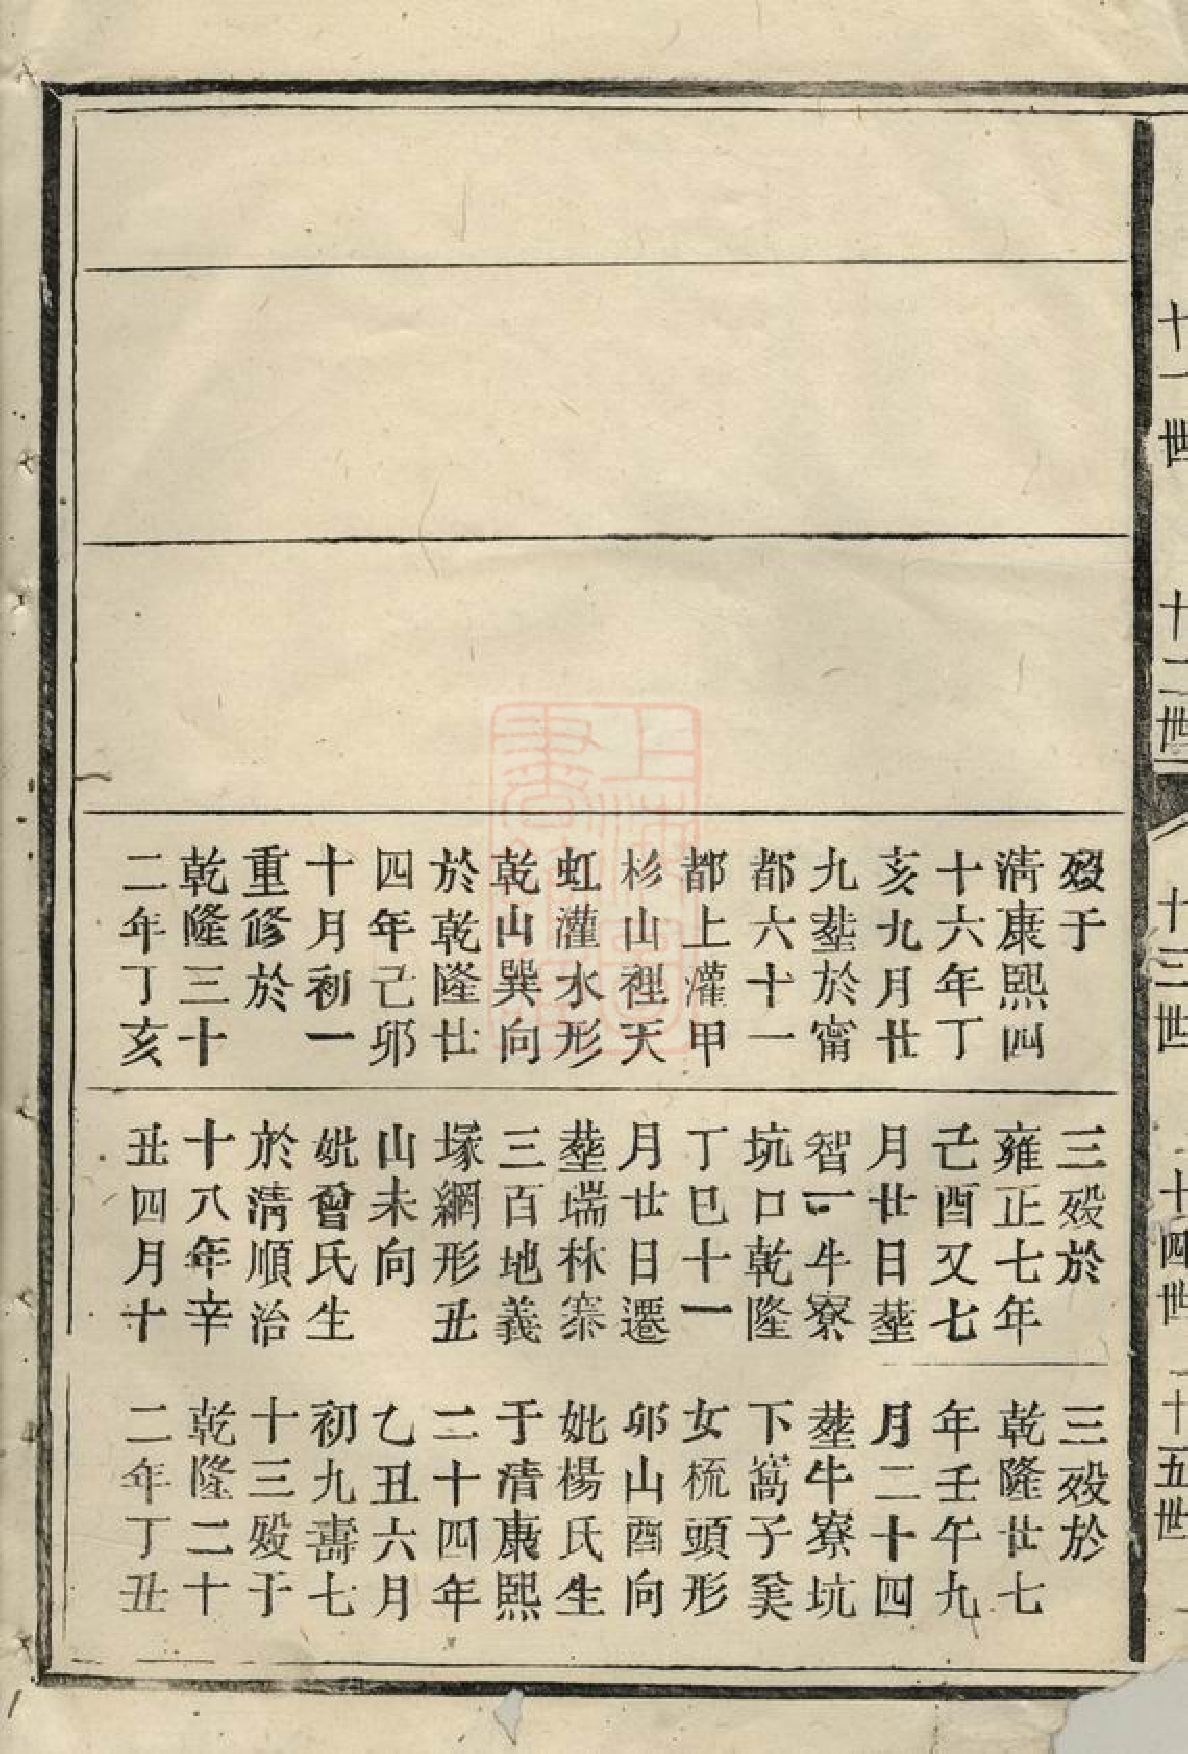 十一世
十二世
十三世
十四世
十五世
殁于
淸康熙四
十六年丁
亥九月廿
九塟於甯
都六十一
都上灌甲
杉山裡天
虹灌水形
乾山巽向
於乾隆廿
四年己卯
十月初一
重修於
乾隆三十
二年丁亥
三殁於
雍正七年
己酉又七
月廿日塟
智一牛寮
坑口乾隆
丁巳十一
月廿日遷
塟瑞林寨
三百地義
塚網形丑
山未向
妣曾氏生
於淸順治
十八年辛
丑四月十
三殁於
乾隆廿七
年壬午九
月二十四
塟牛寮坑
下窩子
女梳頭形
卯山酉向
妣楊氏生
于清康熙
二十四年
乙丑六月
初九壽七
十三殁于
乾隆二十
二年丁丑